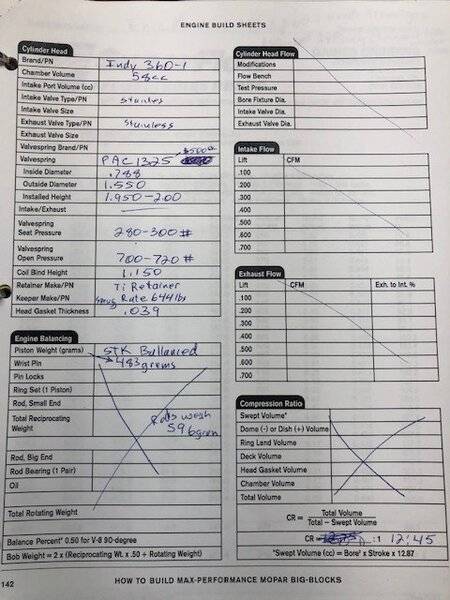 ENGINE BUILD SHEETS
Cylinder Head
Brand/PN Indy 360-1
Chamber Volume 58cc
Intake Port Volume (cc)
Intake Valve Type/PN stainles
Intake Valve Size
Exhaust Valve Type/PN Stainless
Exhaust Valve Size
Valvespring Brand/PN
Valvespring PAC 1325
Inside Diameter .788
Outside Diameter 1.550
Installed Height 1.950-2.00
Intake/Exhaust
Valvespring
Seat Pressure 280-300#
Valvespring
Open Pressure 700-720#
Coil Bind Height 1.150
Retainer Make/PN Ti Retainer
Keeper Make/PN Rate 644 lbs
Head Gasket Thickness .039
Engine Balancing
Piston Weight (grams) STK Ballanced
Wrist Pin 483 grams
Pin Locks
Ring Set (1 Piston)
Rod, Small End
Total Reciprocating
Weight
Rods weigh
596 gram
Rod, Big End
Rod Bearing (1 Pair)
Oil
Total Rotating Weight
Balance Percent* 0.50 for V-8 90-degree
Bob Weight = 2 x (Reciprocating Wt. x .50 + Rotating Weight)
Cylinder Head Flow
Modifications
Flow Bench
Test Pressure
Bore Fixture Dia.
Intake Valve Dia.
Exhaust Valve Dia.
Intake Flow
Lift CFM
.100
.200
.300
.400
.500
.600
.700
Exhaust Flow
Lift CFM Exh. to Int. %
.100
.200
.300
.400
.500
.600
.700
Compression Ratio
Swept Volume*
Dome (-) or Dish (+) Volume
Ring Land Volume
Deck Volume
Head Gasket Volume
Chamber Volume
Total Volume
CR = Total Volume
Total – Swept Volume
CR = :1 12:45
*Swept Volume (cc) = Bore² x Stroke x 12.87
142 HOW TO BUILD MAX-PERFORMANCE MOPAR BIG-BLOCKS